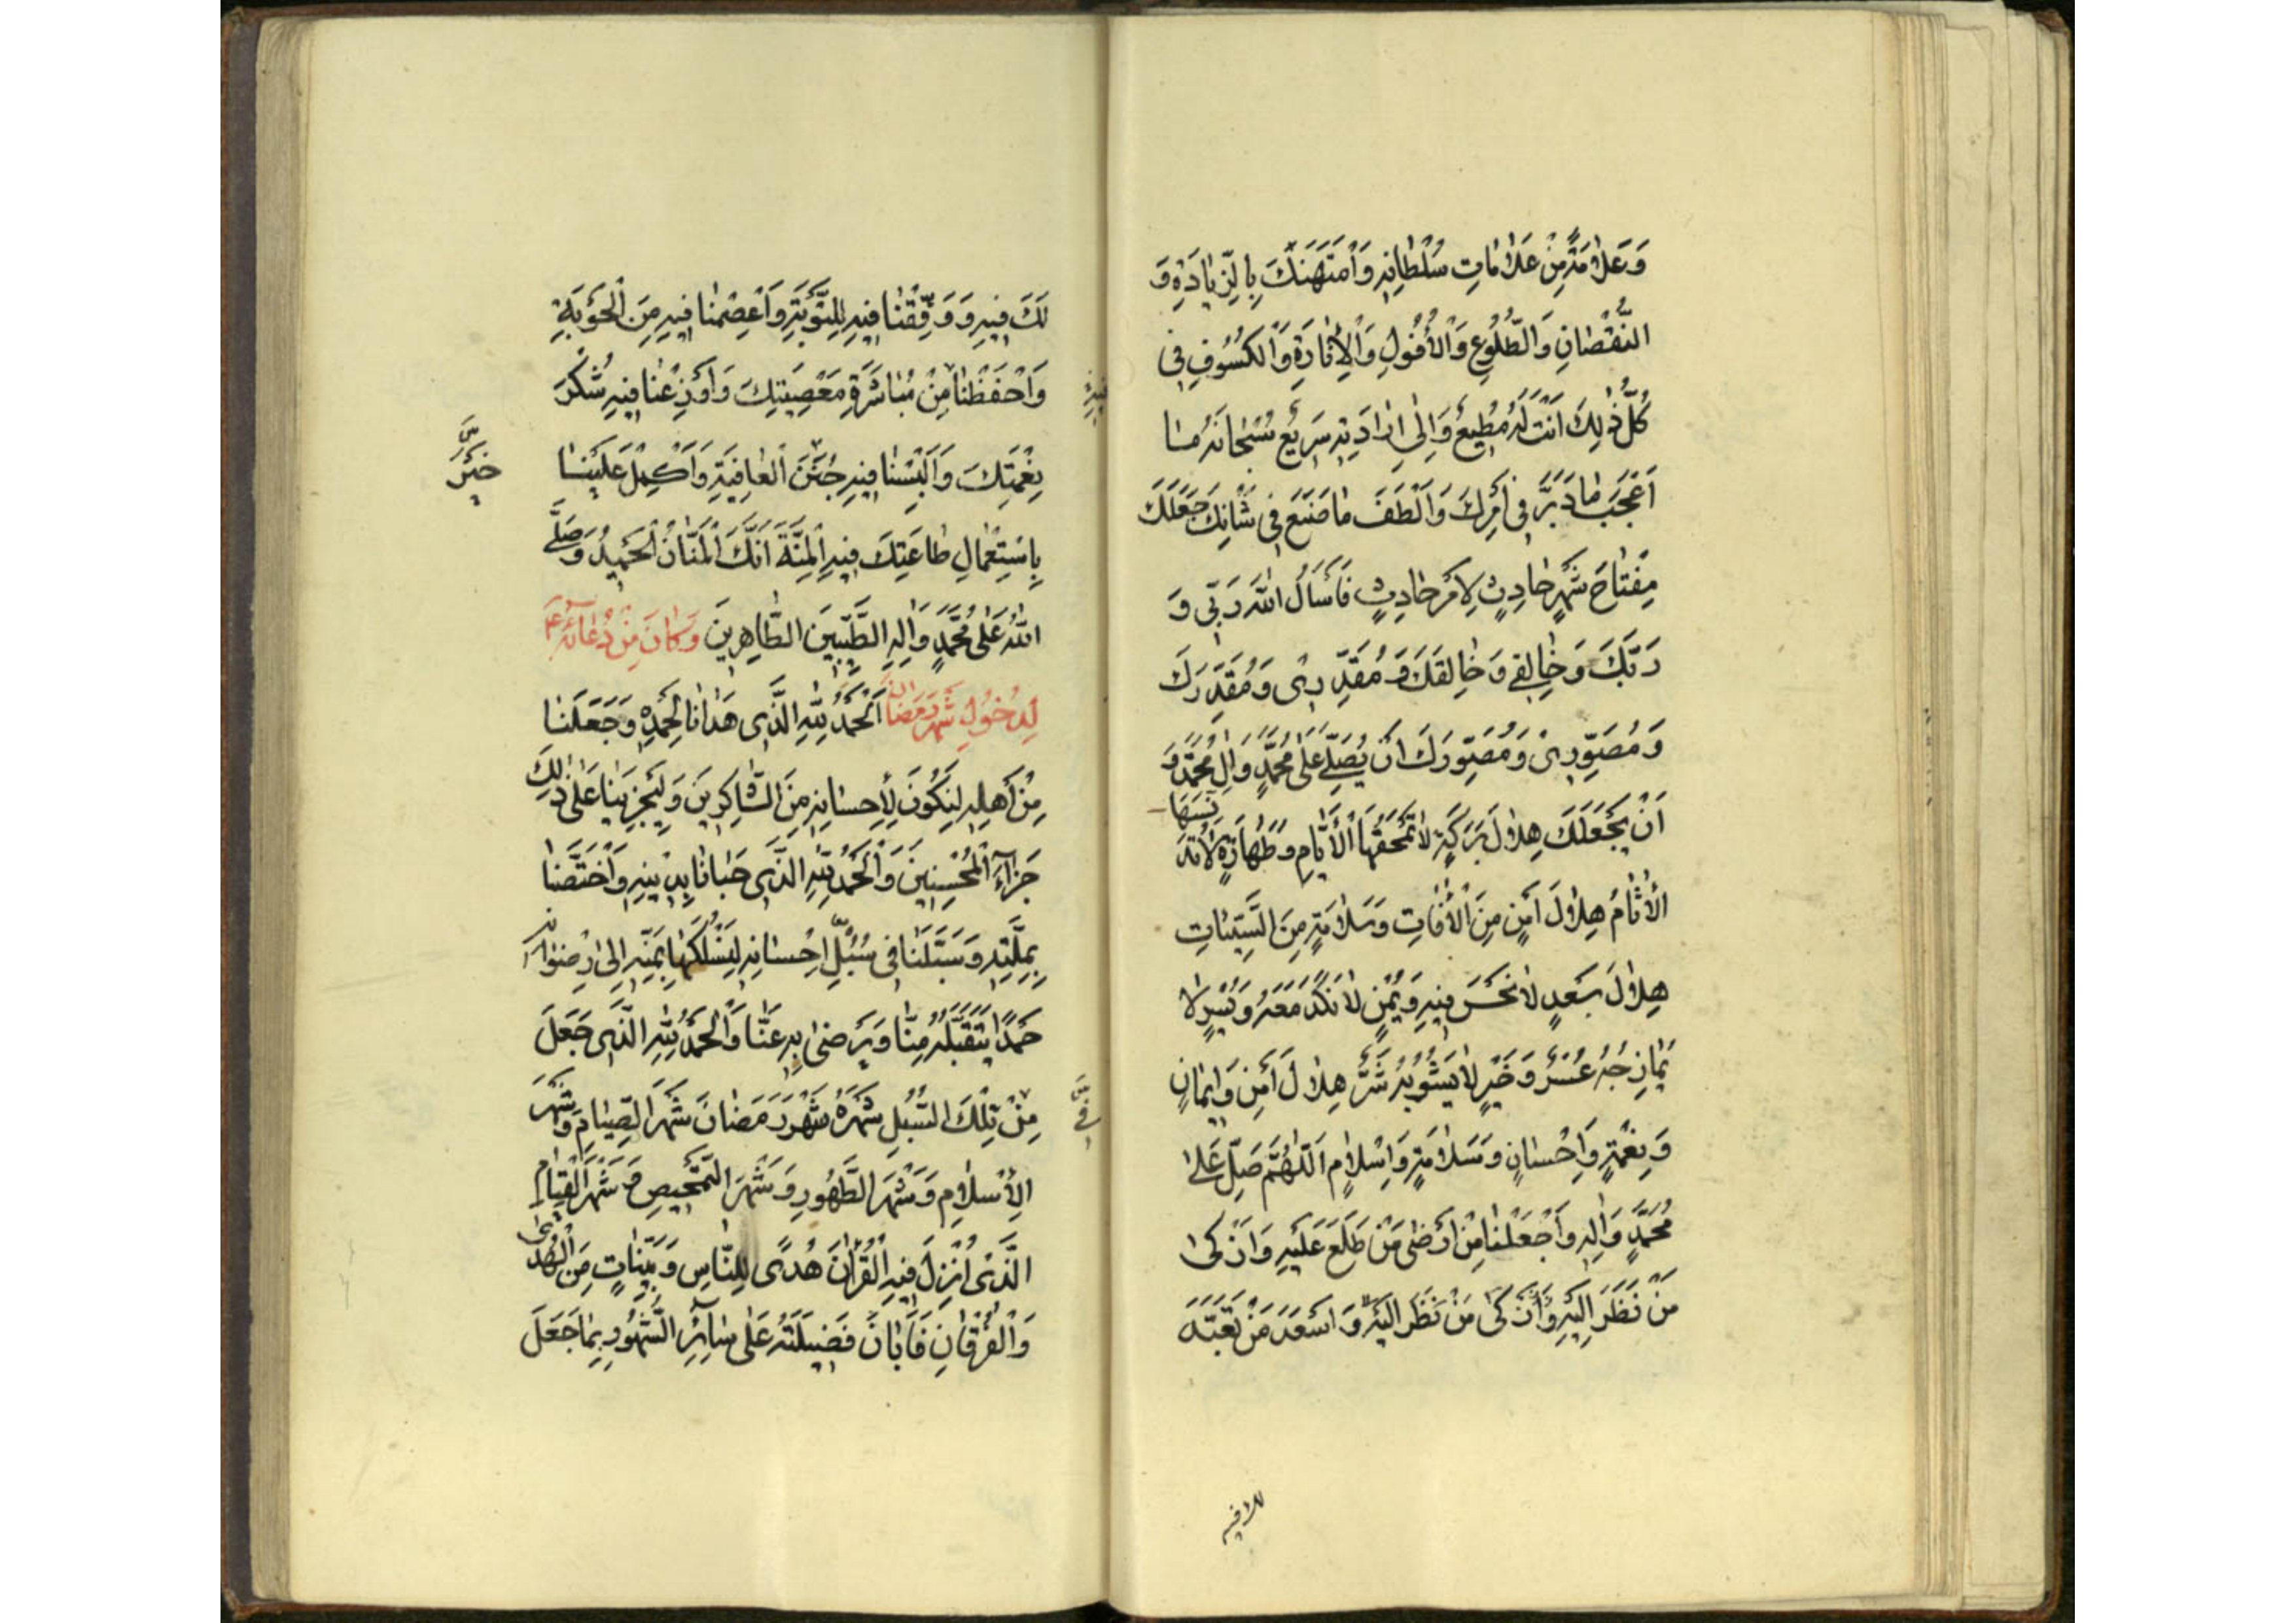 وَعَلاٰمَةً مِنْ عَلاٰمٰاتِ سُلْطٰانِهِ وَامْتَهَنَكَ بِالزِّيٰادَةِ وَ
النُّقْصٰانِ وَالطُّلُوعِ وَالْأُفُولِ وَالْإِنٰارَةِ وَالْكُسُوفِ فِي
كُلِّ ذٰلِكَ اَنْتَ لَهُ مُطِيعٌ وَاِلىٰ اِرٰادَتِهِ سَرِيعٌ سُبْحٰانَهُ مٰا
اَعْجَبَ مٰا دَبَّرَ فِي اَمْرِكَ وَاَلْطَفَ مٰا صَنَعَ فِي شَأْنِكَ جَعَلَكَ
مِفْتٰاحَ شَهْرٍ حٰادِثٍ لِاَمْرٍ حٰادِثٍ فَاَسْأَلُ اللّٰهَ رَبِّي وَ
رَبَّكَ وَخٰالِقِي وَخٰالِقَكَ وَمُقَدِّرِي وَمُقَدِّرَكَ
وَمُصَوِّرِي وَمُصَوِّرَكَ اَنْ يُصَلِّيَ عَلىٰ مُحَمَّدٍ وَاٰلِ مُحَمَّدٍ وَ
اَنْ يَجْعَلَكَ هِلاٰلَ بَرَكَةٍ لاٰ تَمْحَقُهَا الْأَيّٰامُ وَطَهٰارَةٍ لاٰ تُدَنِّسُهَا
الْأٰثٰامُ هِلاٰلَ اَمْنٍ مِنَ الْأٰفٰاتِ وَسَلاٰمَةٍ مِنَ السَّيِّئٰاتِ
هِلاٰلَ سَعْدٍ لاٰ نَحْسَ فِيهِ وَيُمْنٍ لاٰ نَكَدَ مَعَهُ وَيُسْرٍ لاٰ
يُمٰازِجُهُ عُسْرٌ وَخَيْرٍ لاٰ يَشُوبُهُ شَرٌّ هِلاٰلَ اَمْنٍ وَاِيمٰانٍ
وَنِعْمَةٍ وَاِحْسٰانٍ وَسَلاٰمَةٍ وَاِسْلاٰمٍ اَللّٰهُمَّ صَلِّ عَلىٰ
مُحَمَّدٍ وَاٰلِهِ وَاجْعَلْنٰا مِنْ اَرْضىٰ مَنْ طَلَعَ عَلَيْهِ وَاَزْكىٰ
مَنْ نَظَرَ اِلَيْهِ وَاَزْكىٰ مَنْ نَظَرَ اِلَيْهِ وَاَسْعَدَ مَنْ تَعَبَّدَ
لك فيه
لَكَ فِيهِ وَوَفِّقْنٰا فِيهِ لِلتَّوْبَةِ وَاعْصِمْنٰا فِيهِ مِنَ الْحَوْبَةِ
وَاحْفَظْنٰا مِنْ مُبٰاشَرَةِ مَعْصِيَتِكَ وَاَوْزِعْنٰا فِيهِ شُكْرَ
فِيهِ
نِعْمَتِكَ وَاَلْبِسْنٰا فِيهِ جُنَنَ الْعٰافِيَةِ وَاَكْمِلْ عَلَيْنٰا
بِاسْتِعْمٰالِ طٰاعَتِكَ فِيهِ الْمِنَّةَ اِنَّكَ الْمَنّٰانُ الْحَمِيدُ وَصَلَّى
اللّٰهُ عَلىٰ مُحَمَّدٍ وَاٰلِهِ الطَّيِّبِينَ الطّٰاهِرِينَ وَكٰانَ مِنْ دُعٰائِهِ عم
لِدُخُولِ شَهْرِ رَمَضٰانَ اَلْحَمْدُ لِلّٰهِ الَّذِي هَدٰانٰا لِحَمْدِهِ وَجَعَلَنٰا
مِنْ اَهْلِهِ لِنَكُونَ لِإِحْسٰانِهِ مِنَ الشّٰاكِرِينَ وَلِيَجْزِيَنٰا عَلىٰ ذٰلِكَ
جَزٰاءَ الْمُحْسِنِينَ وَالْحَمْدُ لِلّٰهِ الَّذِي حَبٰانٰا بِدِينِهِ وَاخْتَصَّنٰا
بِمِلَّتِهِ وَسَبَّلَنٰا فِي سُبُلِ اِحْسٰانِهِ لِنَسْلُكَهٰا بِمَنِّهِ اِلىٰ رِضْوٰانِهِ
حَمْدًا يَتَقَبَّلُهُ مِنّٰا وَيَرْضىٰ بِهِ عَنّٰا وَالْحَمْدُ لِلّٰهِ الَّذِي جَعَلَ
مِنْ تِلْكَ السُّبُلِ شَهْرَهُ شَهْرَ رَمَضٰانَ شَهْرَ الصِّيٰامِ وَشَهْرَ
الْإِسْلاٰمِ وَشَهْرَ الطَّهُورِ وَشَهْرَ التَّمْحِيصِ وَشَهْرَ الْقِيٰامِ
الَّذِي اُنْزِلَ فِيهِ الْقُرْاٰنُ هُدًى لِلنّٰاسِ وَبَيِّنٰاتٍ مِنَ الْهُدىٰ
وَالْفُرْقٰانِ فَاَبٰانَ فَضِيلَتَهُ عَلىٰ سٰائِرِ الشُّهُورِ بِمٰا جَعَلَ